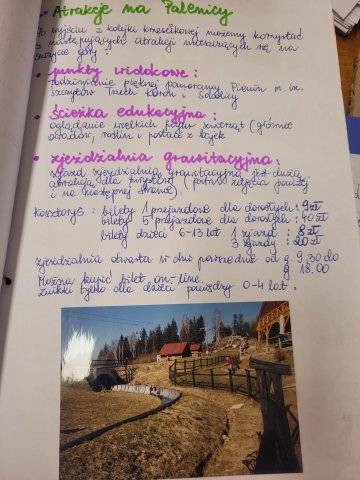 • Atrakcje na Palenicy
Po wyjściu z kolejki krzesełkowej możemy korzystać
z następujących atrakcji mieszczących się na
szczycie góry:
• punkty widokowe:
podziwianie pięknej panoramy Pienin m. in.
szczytów Trzech Koron i Sokolicy
• ścieżka edukacyjna:
oglądanie wielkich figur zwierząt (głównie
owadów, roślin i postaci z bajek
• zjeżdżalnia grawitacyjna:
zjazd zjeżdżalnią grawitacyjną jest dużą
atrakcją dla turystów (patrz zdjęcia poniżej
i na następnej stronie)
kosztorys: bilety 1 przejazdowe dla dorosłych: 9 zł
bilety 5 przejazdowe dla dorosłych: 40 zł
bilety dzieci 6-13 lat 1 zjazd: 8 zł
3 zjazdy: 20 zł
zjeżdżalnia otwarta w dni powszednie od g. 9.30 do
g. 18.00
Można kupić bilet on-line.
Zniżki tylko dla dzieci pomiędzy 0-4 lat.